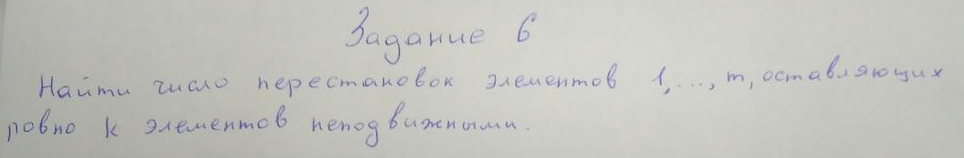 Задание 6
Найти число перестановок элементов 1,...,m, оставляющих
ровно k элементов неподвижными.